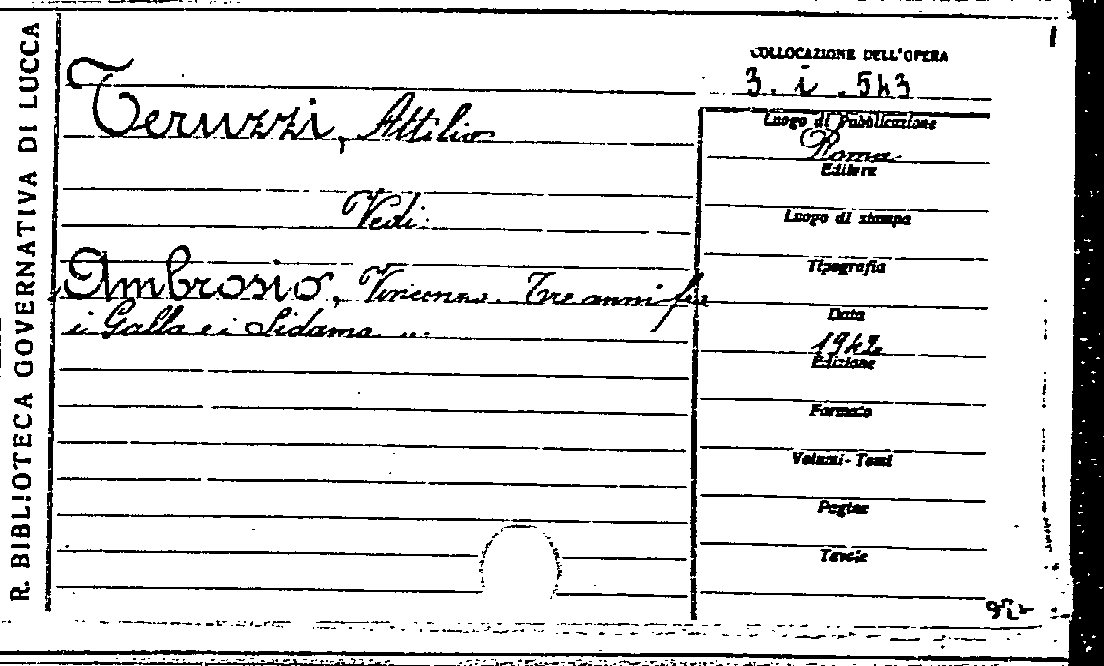 R. BIBLIOTECA GOVERNATIVA DI LUCCA
Teruzzi, Attilio
Vedi:
Ambrosio, Vincenzo. Tre anni fra
i Galla e i Sidama ...
COLLOCAZIONE DELL'OPERA
3. i. 543
Luogo di Pubblicazione
Roma
Editore
Luogo di stampa
Tipografia
Data
1942
Edizione
Formato
Volumi - Tomi
Pagine
Tavole